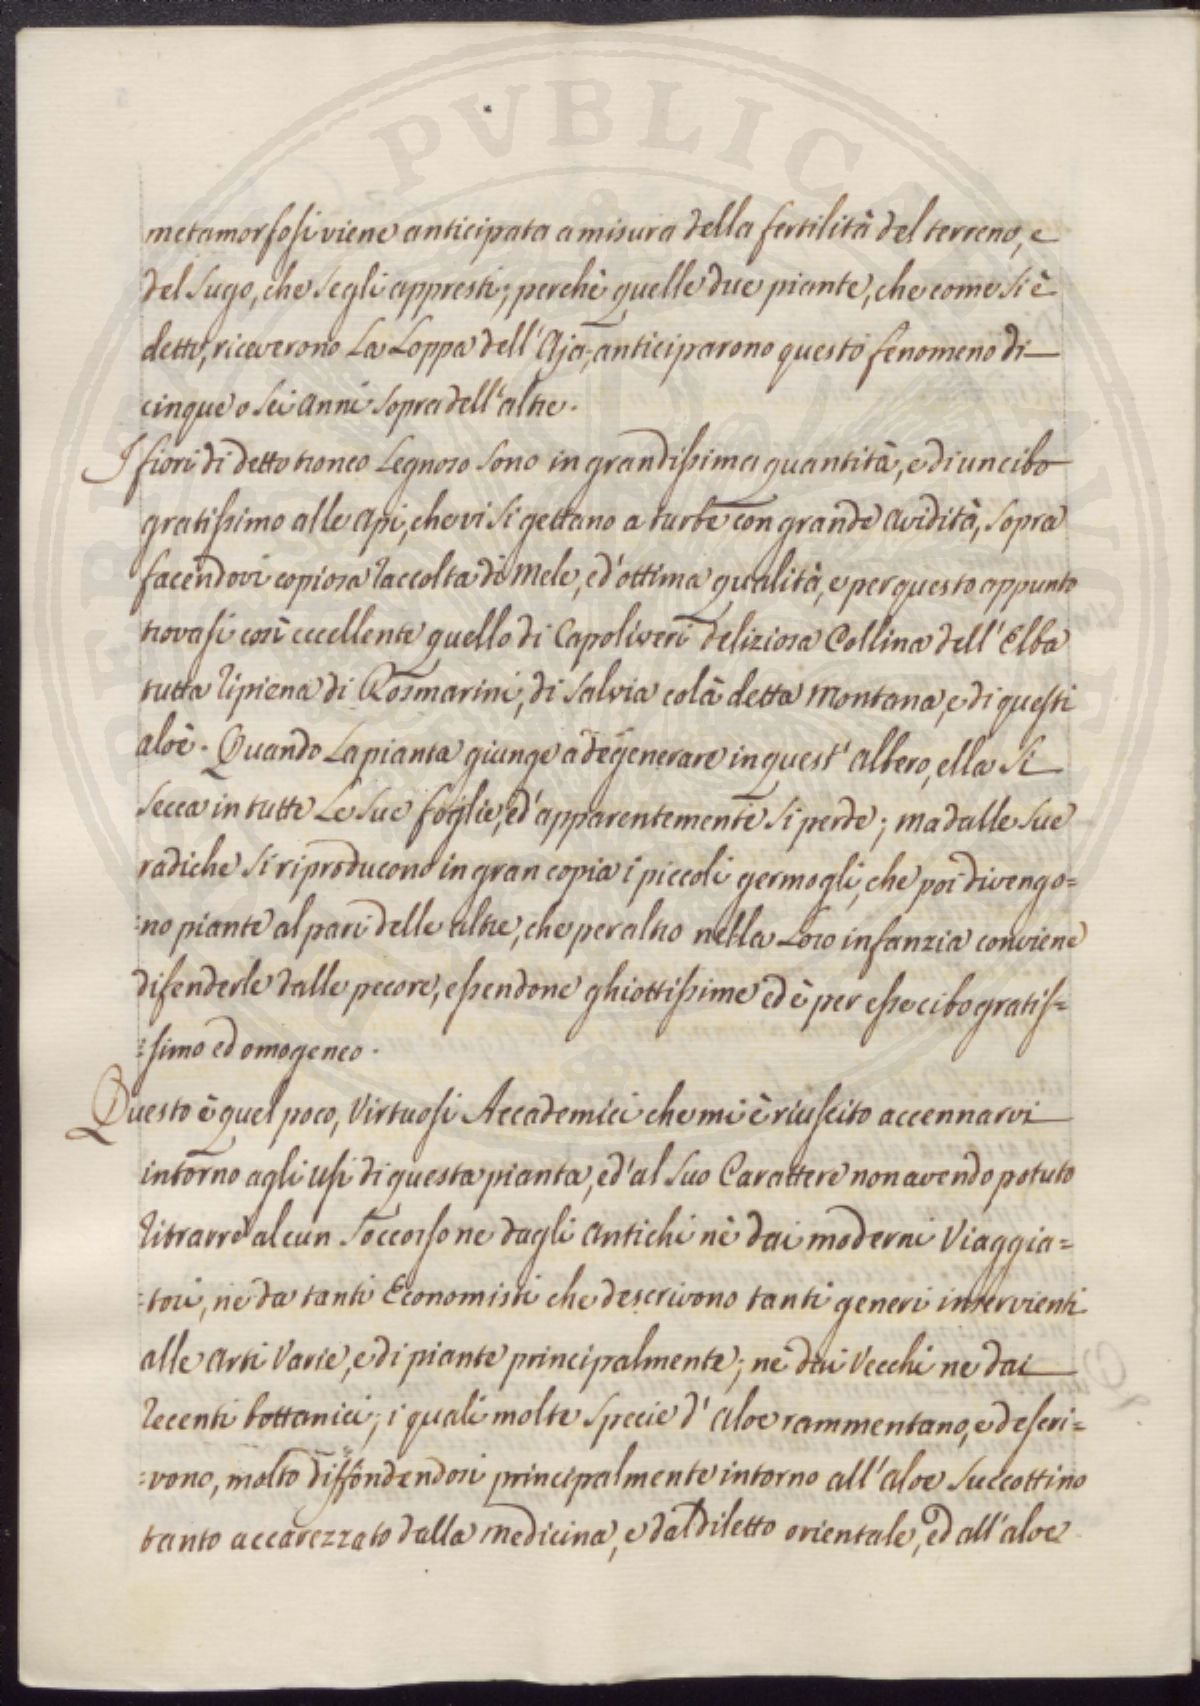 PVBLICAE
metamorfosi viene anticipata a misura della fertilità del terreno, e
del sugo, che segli appresti; perchè quelle due piante, che come si è
detto, riceverono La Loppa dell'Aja, anticiparono questo fenomeno di
cinque o sei anni sopra dell'altre.
I fiori di detto tronco Legnoso sono in grandissima quantità, e di un cibo
gratissimo alle Api, che vi si gettano a turbe con grande avidità, sopra
facendovi copiosa raccolta di Mele, ed'ottima qualità, e per questo appunto
trovasi così eccellente quello di Capoliveri deliziosa Collina dell'Elba
tutta ripiena di Rosmarini, di Salvia colà detta Montana, e di questi
aloè. Quando La pianta giunge a degenerare in quest'albero, ella si
secca in tutte Le sue foglie, ed'apparentemente si perde; ma dalle sue
radiche si riproducono in gran copia i piccoli germogli, che poi divengo=
=no piante al pari delle altre, che per altro nella Loro infanzia conviene
difenderle dalle pecore, essendone ghiottissime ed è per esse cibo gratis=
=simo ed omogeneo.
Questo è quel poco, Virtuosi Accademici che mi è riuscito accennarvi
intorno agli Usi di questa pianta, ed'al suo Carattere non avendo potuto
ritrarre alcun Soccorso ne dagli Antichi nè dai moderni Viaggia=
=tori, ne da tanti Economisti che descrivono tanti generi inservienti
alle Arti Varie, e di piante principalmente; nè dai Vecchi ne dai
recenti bottanici; i quali molte specie d'Aloe rammentano, e descri=
=vono, molto diffondendosi principalmente intorno all'aloe Succottino
tanto accarezzato dalla Medicina, e dal diletto orientale, ed all'aloe